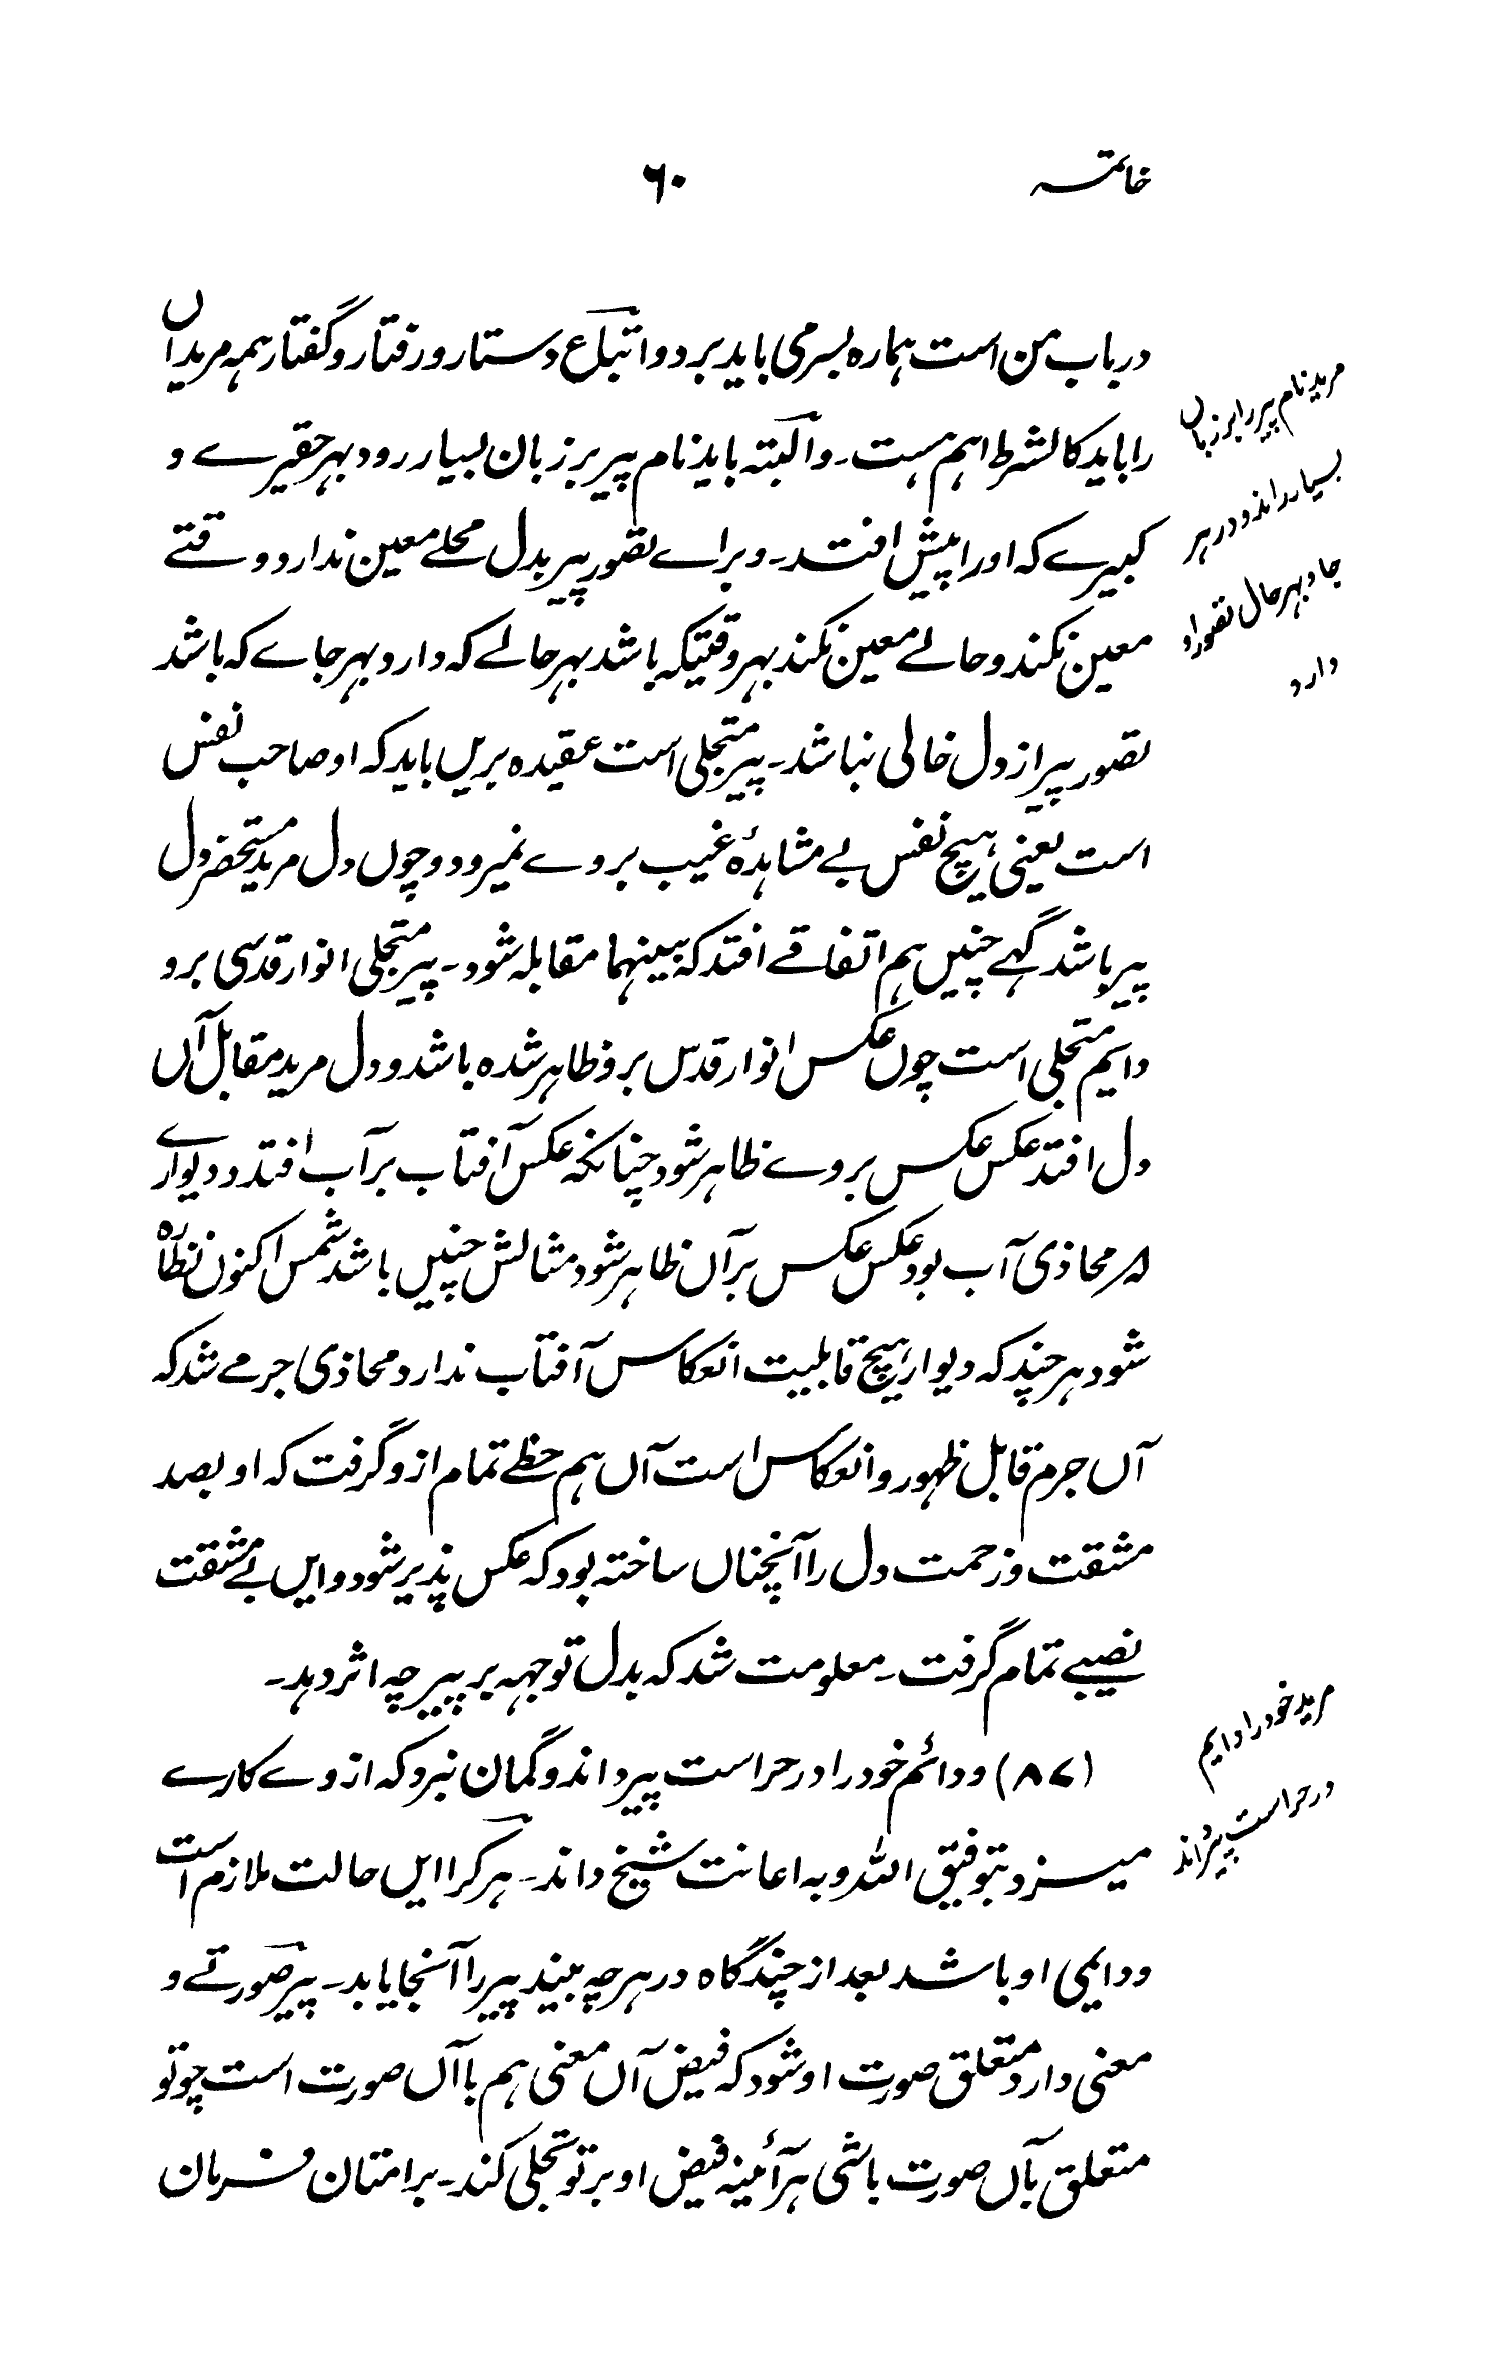 خاتمہ
۶۰
درباب من است ہمارہ بسر می باید برد و اتباع دستار و رفتار و گفتار ہمہ مریداں
را باید کالشرط اہم ہست۔ و البتہ باید نام پیر بر زبان بسیار رود بہر حقیرے و
کبیرے کہ او را پیش افتد۔ و براے تصور پیر بدل محلے معین ندارد و وقتے
معین نکند و حالے معین نکند بہر وقتیکہ باشد بہر حالے کہ دارد بہر جاے کہ باشد
تصور پیر از دل خالی نباشد۔ پیر متجلی است عقیدہ بریں باید کہ او صاحب نفس
است یعنی ہیچ نفس بے مشاہدۂ غیب بر وے نمیرود و چوں دل مرید مستحضر دل
پیر باشد گہے چنیں ہم اتفاقے افتد کہ بینہما مقابلہ شود۔ پیر متجلی انوار قدسی برو
دایم متجلی است چوں عکس انوار قدس برو ظاہر شدہ باشد و دل مرید مقابل آں
دل افتد عکس عکس بروے ظاہر شود چنانکہ عکس آفتاب بر آب افتد و دیوارے
کہ محاذی آب بود عکس عکس بر آن ظاہر شود مثالش چنیں باشد شمس اکنون نظارہ
شود ہر چند کہ دیوار ہیچ قابلیت انعکاس آفتاب ندارد محاذی جرمے شد کہ
آں جرم قابل ظہور و انعکاس است آں ہم حظے تمام ازو گرفت کہ او بصد
مشقت و زحمت دل را آنچناں ساختہ بود کہ عکس پذیر شود و ایں بے مشقت
نصیبے تمام گرفت۔ معلومت شد کہ بدل توجہہ بر پیر چہ اثر دہد۔
(۸۷) و دائم خود را در حراست پیر داند و گمان نبرد کہ از وے کارے
میسزد بتوفیق اللہ و بہ اعانت شیخ داند۔ ہر کرا ایں حالت ملازم است
و دایمی او باشد بعد از چند گاہ در ہر چہ بیند پیر را آنجا یابد۔ پیر صورتے و
معنی دارد متعلق صورت او شود کہ فیض آں معنی ہم با آں صورت است چو تو
متعلق بآں صورت باشی ہر آئینہ فیض او بر تو تجلی کند۔ بر امتان فرمان
مرید نام پیر را بر زباں
بسیار راند و در ہر
جا و بہر حال تصور او
دارد
مرید خود را دایم
در حراست پیر داند